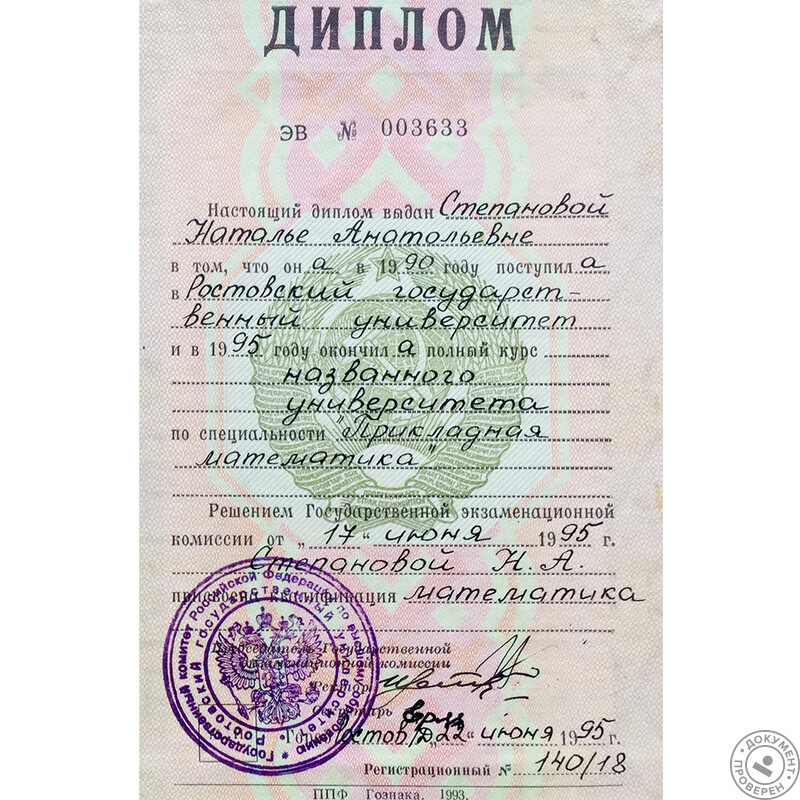 ДИПЛОМ
ЭВ № 003633
Настоящий диплом выдан Степановой
Наталье Анатольевне
в том, что он а в 1990 году поступил а
в Ростовский государст-
венный университет
и в 1995 году окончил а полный курс
названного
университета
по специальности "Прикладная
математика"
Решением Государственной экзаменационной
комиссии от „17“ июня 1995 г.
Степановой Н. А.
присвоена квалификация математика
Председатель Государственной
экзаменационной комиссии
Ректор
Секретарь
Город Ростов/Д „22“ июня 1995 г.
Регистрационный № 140/18
ППФ Гознака, 1993.
Государственный комитет Российской Федерации по высшему образованию *
Ростовский государственный университет
ДОКУМЕНТ ПРОВЕРЕН